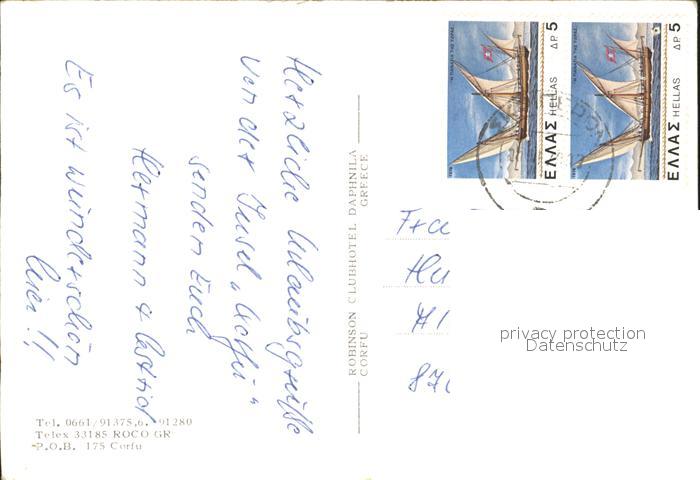 Herzliche Urlaubsgrüße
von der Insel „Korfu"
senden Euch
Hermann &
Es ist wunderschön
hier!!
ROBINSON CLUBHOTEL DAPHNILA
CORFU GREECE
Tel. 0661/91375,6. 91280
Telex 33185 ROCO GR
P.O.B. 175 Corfu
ΕΛΛΑΣ HELLAS ΔΡ 5
ΕΛΛΑΣ HELLAS ΔΡ 5
privacy protection
Datenschutz